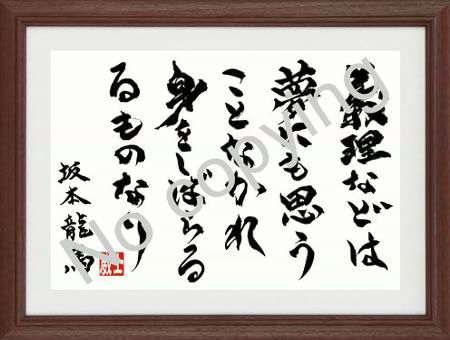 義理などは
夢にも思う
ことなかれ
身をしばらる
るものなり
坂本龍馬
No copying